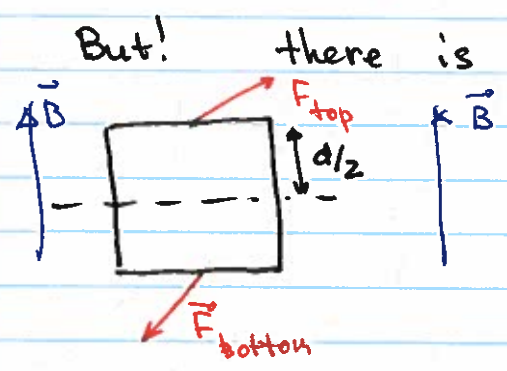 But! there is
B⃗
F top
B⃗
d/2
F⃗ bottom